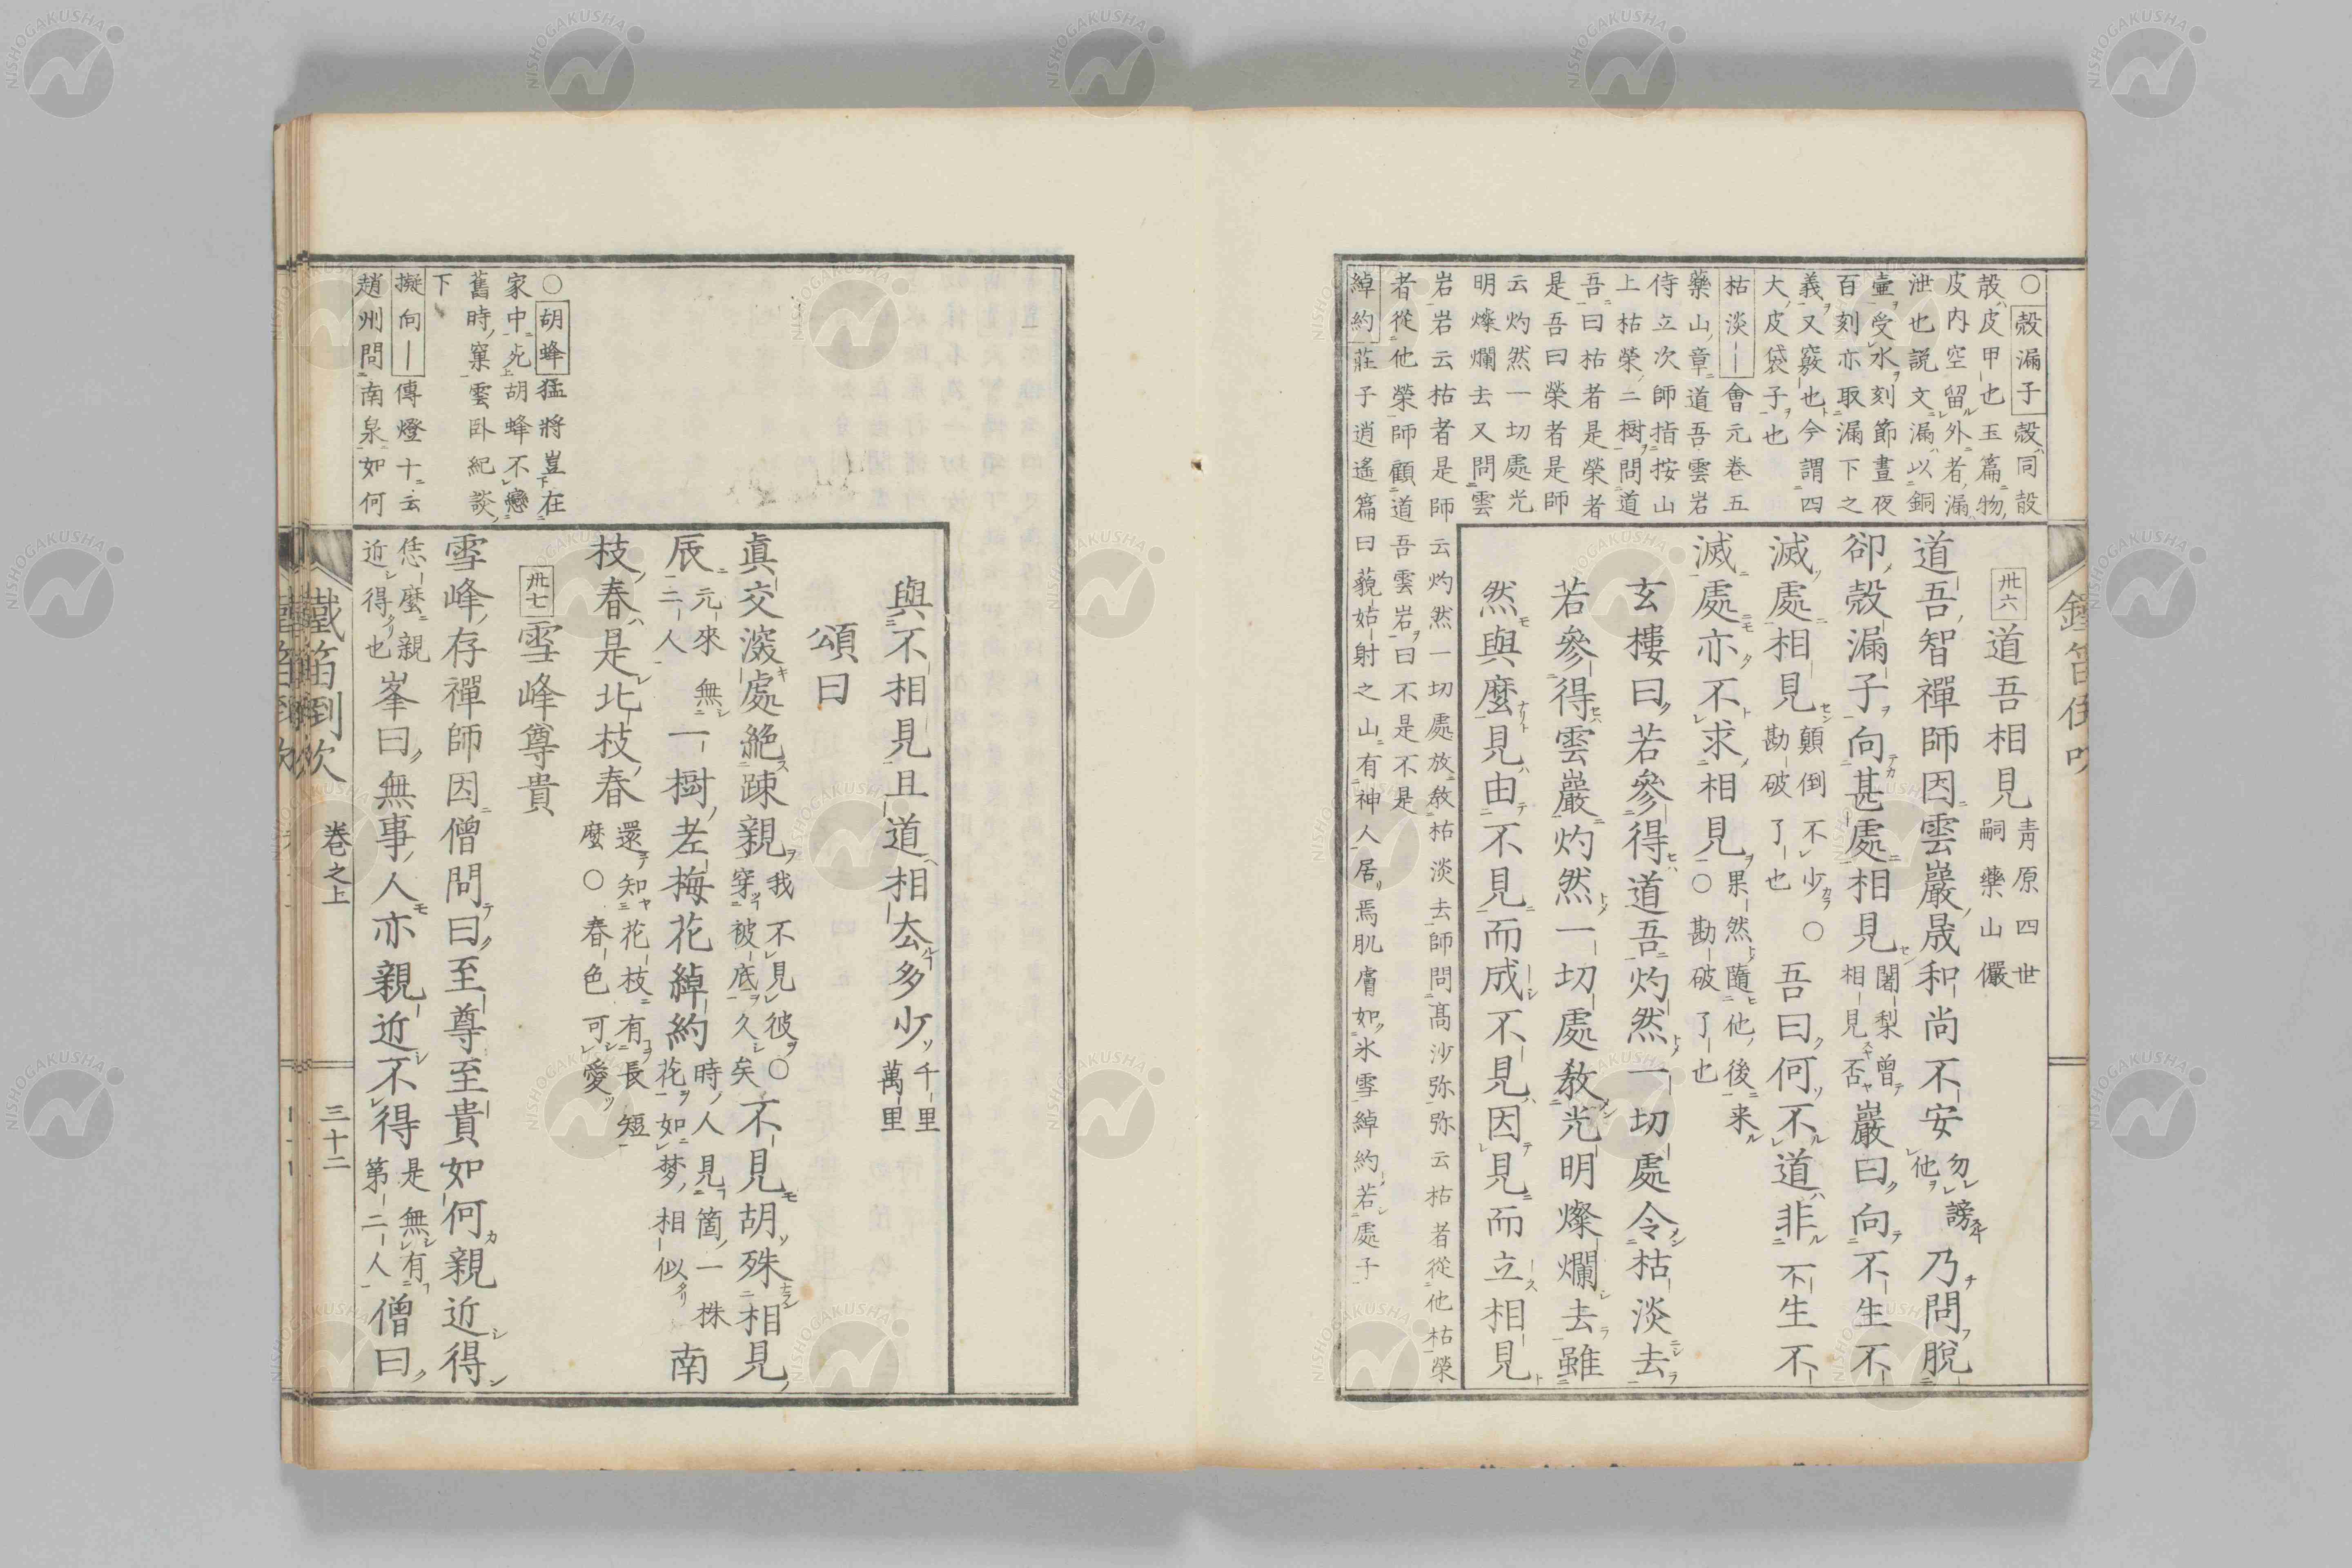 〇殼漏子殼同㱿
㱿皮甲也玉篇物
皮内空留外者漏
泄也説文漏以銅
壷受水刻節晝夜
百刻亦取漏下之
義又竅也今謂四
大皮袋子也
枯淡――會元卷五
藥山章道吾雲岩
侍立次師指按山
上枯榮二樹問道
吾曰枯者是榮者
是吾曰榮者是師
云灼然一切處光
明燦爛去又問雲
岩岩云枯者是師云灼然一切處放敎枯淡去師問髙沙弥弥云枯者從他枯榮
者從他榮師顧道吾雲岩曰不是不是
綽約莊子逍遙篇曰藐姑射之山有神人居焉肌膚如氷雪綽約若處子
卅六道吾相見青原四世
嗣藥山儼
道吾智禪師因雲巖晟和尚不安勿謗
他乃問脫
卻殼漏子向甚處相見闍梨曾
相見否巖曰向不生不
滅處相見顛倒不少〇
勘破了也吾曰何不道非不生不
滅處亦不求相見果然隨他後来
〇勘破了也
玄樓曰若參得道吾灼然一切處令枯淡去
若參得雲巖灼然一切處敎光明燦爛去雖
然與麼見由不見而成不見因見而立相見
鐵笛倒吹
與不相見且道相去多少千里
萬里
頌曰
眞交深處絶踈親我不見彼〇
穿被底久矣不見胡殊相見
辰元來無
二人一樹老梅花綽約時人見箇一株
花如夢相似南
枝春是北枝春還知花枝有長短
麼〇春色可愛
卅七雪峰尊貴
雪峰存禪師因僧問曰至尊至貴如何親近得
恁麼親
近得也峯曰無事人亦親近不得是無有
第二人僧曰
〇胡蜂猛將豈在
家中死胡蜂不戀
舊時窠雲卧紀談
下
擬向―傳燈十云
趙州問南泉如何
鐵笛倒吹 卷之上 三十二